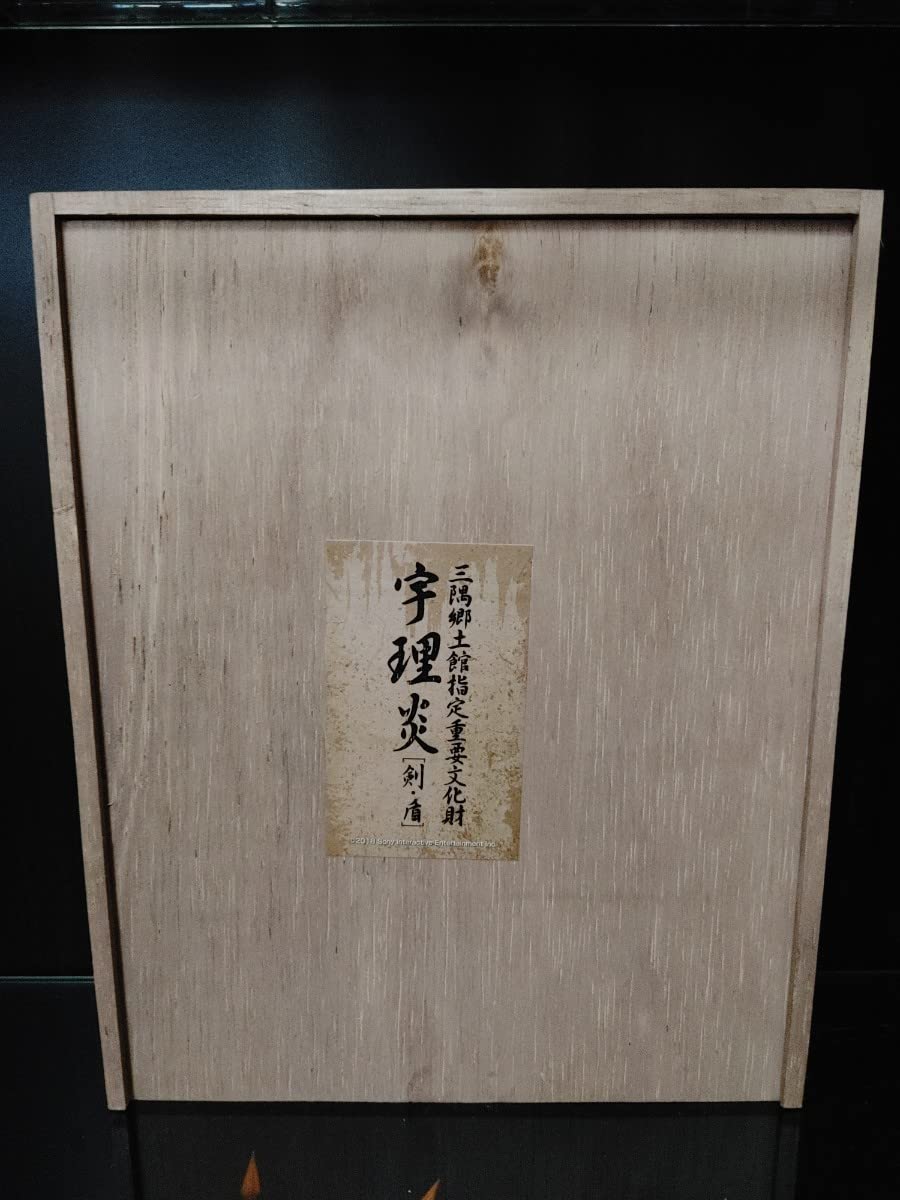 三隅郷土館指定重要文化財
宇理炎[剣・盾]
©2018 Sony Interactive Entertainment Inc.